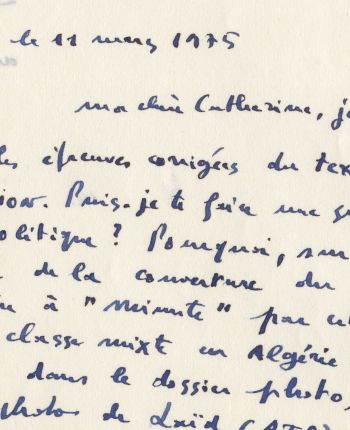 le 11 mars 1975
ma chère Catherine, je
les épreuves corrigées du tex
Puis-je te faire une su
olitique ? Pourquoi, sur
de la couverture du
à "Minute" par
classe mixte en Algérie
dans le dossier photo,
photos de Laïd